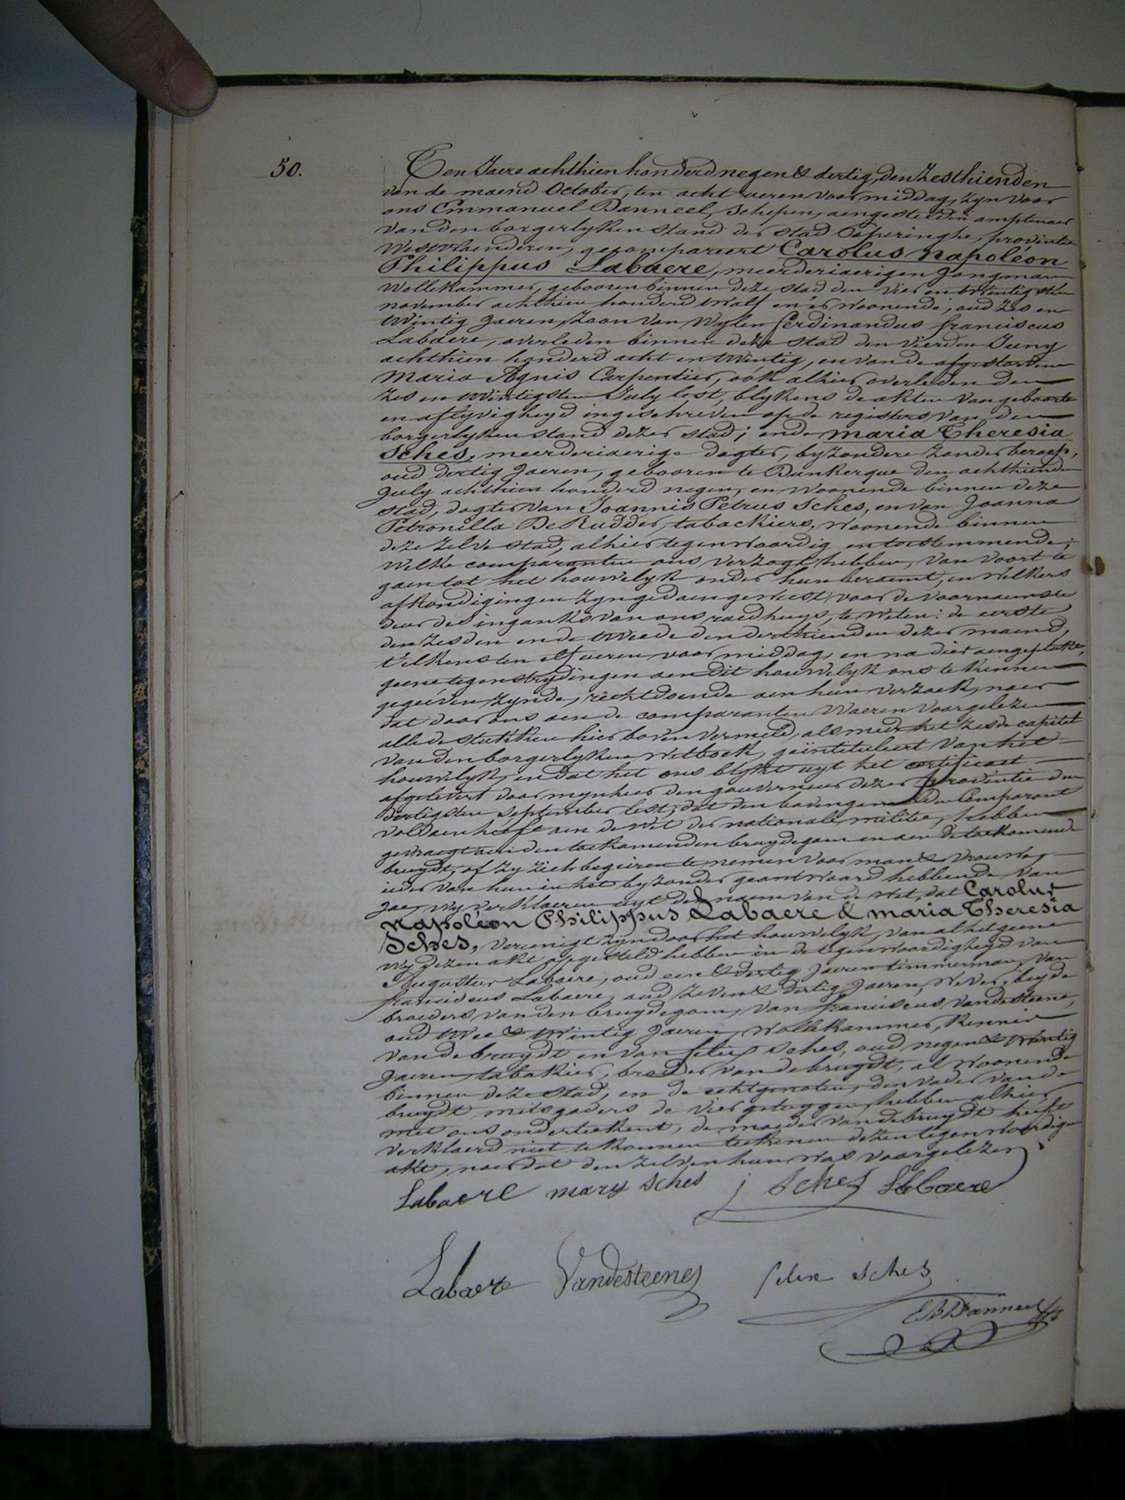 50.
Ten Jaere achthien honderd negen & dertig, den zesthienden
van de maend October, ten acht ueren voor middag, zyn voor
ons Emmanuel Danneel, schepen, aengestelden amptenaer
van den borgerlyken stand der stad Poperinghe, provintie
Westvlaenderen, gecompareert Carolus Napoléon
Philippus Labaere, meerderjaerigen jongman
Wollekammer, gebooren binnen deze stad den vier en twintigsten
november achthien honderd twalf en er woonende, oud zes en
twintig Jaeren, zoon van wylen Ferdinandus franciscus
Labaere, overleden binnen deze stad den vierden Juny
achthien honderd acht en twintig, en van de afgestorvene
Maria Agnis Carpentier, ook alhier overleden den
zes en twintigsten July lest, blykens de akten van geboorte
en aflyvigheyd ingeschreven op de registers van den
borgerlyken stand dezer stad; ende Maria Theresia
Sches, meerderjaerige dogter, byzondere zonder beroep,
oud dertig Jaeren, gebooren te Dunkerque den achthienden
July achthien honderd negen, en woonende binnen deze
stad, dogter van Joannis Petrus Sches, en van Joanna
Petronilla De Rudder, tabackiers, woonende binnen
deze zelve stad, alhier tegenwoordig en toestemmende;
Welke comparanten ons verzogt hebben, van voort te
gaen tot het houwelyk onder hun beraemt, en welkers
afkondigingen zyn gedaen geweest, voor de voornaemste
deur des ingank van ons raedhuys, te weten: de eerste
den zesden en de tweede den derthienden dezer maend,
telkens ten elf ueren voor middag, en na dier aengeplakt,
geene tegenstrydingen aen dit houwelyk ons te kennen
gegeéven zynde, rechtdoende aen hun verzoek, naer
dat door ons aen de comparanten waeren voorgelezen
alle de stukken hier boven vermeld, als mede het zesde capitel
van den borgerlyken wetboek, geïntituleert van het
houwelyk, en dat het ons blykt uyt het certificaet
afgelevert door mynheer den gouverneur dezer provintie den
dertigsten september lest, dat den bovengemelden Comparant
voldaen heeft aen de wet der nationale militie, hebben
gevraegt aen den toekomenden bruydegom en aen de toekomende
bruydt, of zy zich begeiren te nemen voor man & vrouw,
ieder van hun in het byzonder geantwoord hebbende van
jae, wy verklaeren uyt den naem van de wet, dat Carolus
Napoléon Philippus Labaere & Maria Theresia
Sches, vereenigt zyn door het houwelyk, van al het gene
wy dezen akt opgesteld hebben in de tegenwoordigheyd van
Augustus Labaere, oud een & dertig Jaeren timmerman, van
franciscus Labaere, oud zeven & dertig Jaeren, wever, beyde
broeders van den bruydegom, van franciscus Vandesteene,
oud twee & twintig Jaeren, Wollekammer, kennis
van de bruydt en van felix Sches, oud negen & twintig
Jaeren, tabakier, broeder van de bruydt, al woonende
binnen deze stad, en de echtgenoten, den vader van de
bruydt mitsgaders de vier getuygen, hebben alhier
met ons onderteekent, de moeder van de bruydt heeft
verklaerd niet te konnen teekenen dezen tegenwoordigen
akt, naer dat den zelven hun was voorgelezen
Labaere mary Sches j Sches Labaere
Labaere Vandesteene felix Sches
E. Danneel